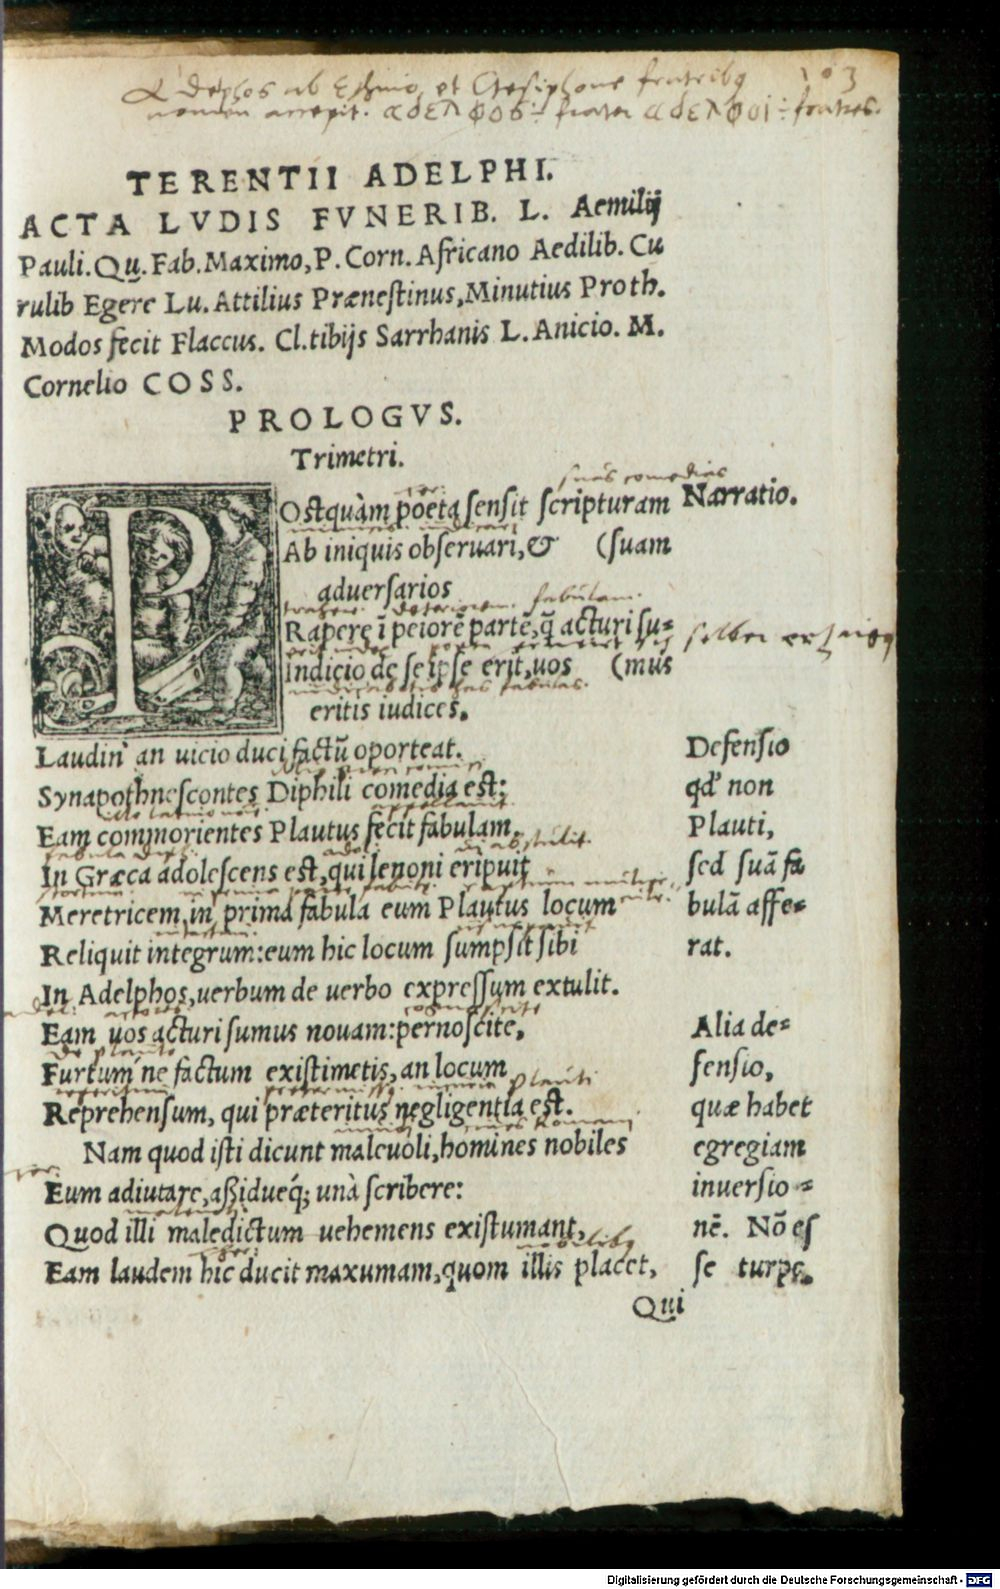 Adelphos ab Eschino et Ctesiphone fratribus 103
nomen accepit. αδελφος frater αδελφοι: fratres.
TERENTII ADELPHI.
ACTA LVDIS FVNERIB. L. Aemilij
Pauli. Qu. Fab. Maximo, P. Corn. Africano Aedilib. Cu
rulib Egere Lu. Attilius Prænestinus, Minutius Proth.
Modos fecit Flaccus. Cl. tibijs Sarrhanis L. Anicio. M.
Cornelio COSS.
PROLOGVS.
Trimetri.
suas comedias
POstquàm poeta sensit scripturam Narratio.
Ab iniquis obseruari, & (suam
aduersarios
trahere. deteriorem. fabulam.
Rapere ĩ peiorẽ partẽ, q̃ acturi su=
Indicio de se ipse erit, uos (mus
selber
eritis iudices,
Laudin' an uicio duci factũ oporteat. Defensio
Synapothnescontes Diphili comedia est: qd' non
Eam commorientes Plautus fecit fabulam, Plauti,
In Græca adolescens est, qui lenoni eripuit sed suã fa
Meretricem, in prima fabula eum Plautus locum bulã affe=
Reliquit integrum: eum hic locum sumpsit sibi rat.
In Adelphos, uerbum de uerbo expressum extulit.
Eam uos acturi sumus nouam: pernoscite, Alia de=
Furtum' ne factum existimetis, an locum fensio,
Reprehensum, qui præteritus negligentia est. quæ habet
Nam quod isti dicunt maleuoli, homines nobiles egregiam
Eum adiutare, aßidueq́; unà scribere: inuersio=
Quod illi maledictum uehemens existumant, nẽ. Nõ es
nobilibus
Eam laudem hic ducit maxumam, quom illis placet, se turpe.
Qui
Digitalisierung gefördert durch die Deutsche Forschungsgemeinschaft - DFG